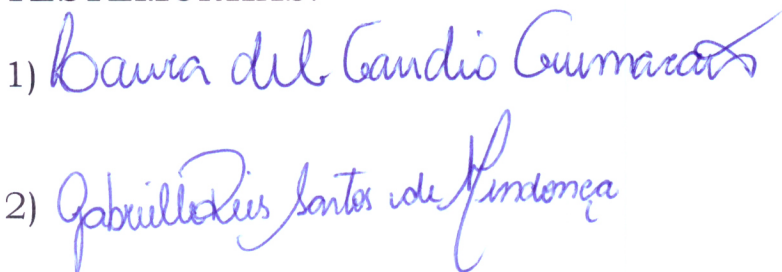 1) Laura del Gaudio Guimarães
2) Gabrielle Reis Santos de Mendonça